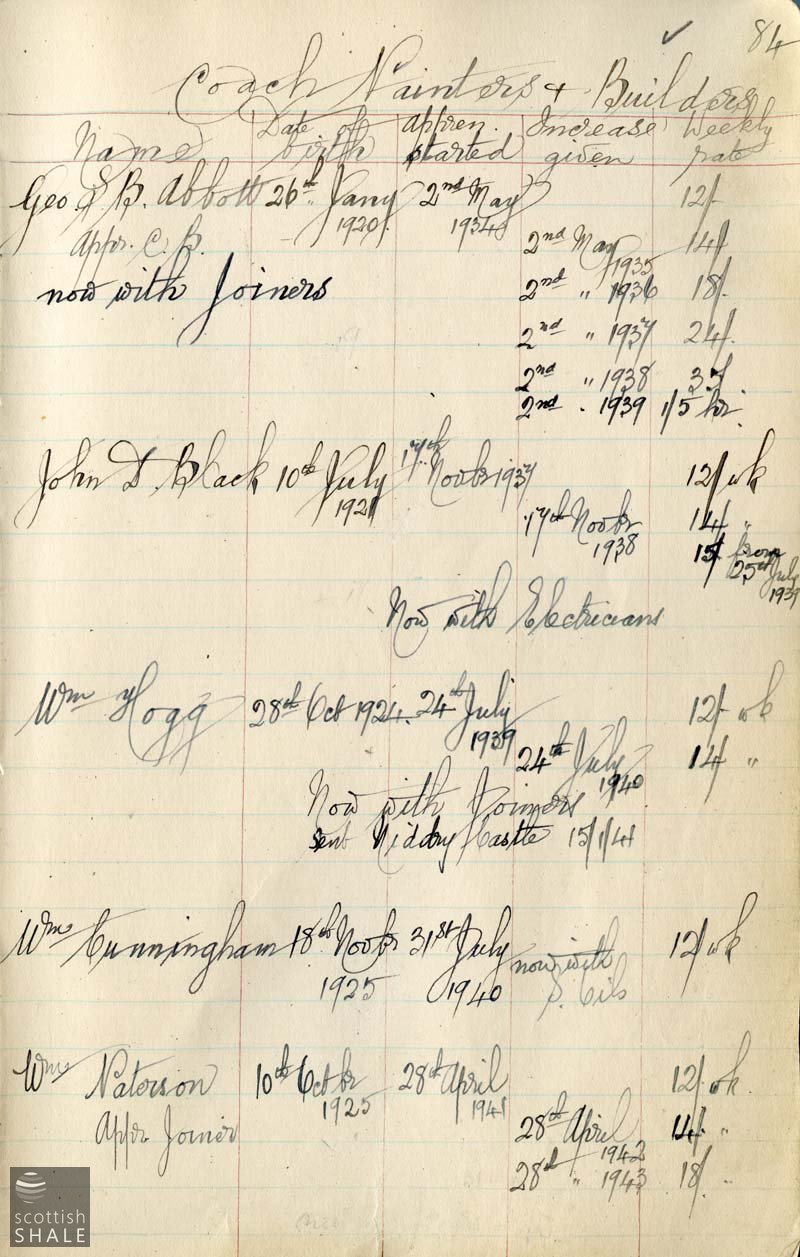 84
Coach Painters & Builders
Name Date of birth Appren. started Increase given Weekly rate
Geo B. Abbott 26th Jany 1920. 2nd May 1934 12/-
Appr. C. B. 2nd May 1935 14/-
now with Joiners 2nd " 1936 18/-
2nd " 1937 24/-
2nd " 1938
2nd " 1939 1/5 hr
John D. Black 10th July 1921 17th Novbr 1937 12/ wk
17th Novbr 1938 14/ "
15/ from 25th July 1939
Now with Electricians
Wm Hogg 28th Oct 1924. 24th July 1939 12/- wk
24th July 1940 14/ "
Now with Joiners
sent Niddry Castle 15/1/41
Wm Cunningham 18th Novbr 1925 31st July 1940 now with 12/ wk
Wm Paterson 10th Octbr 1925 28th April 1941 12/ wk.
Appr. Joiner 28th April 1942 14/- "
28th " 1943 18/- "
scottish
SHALE